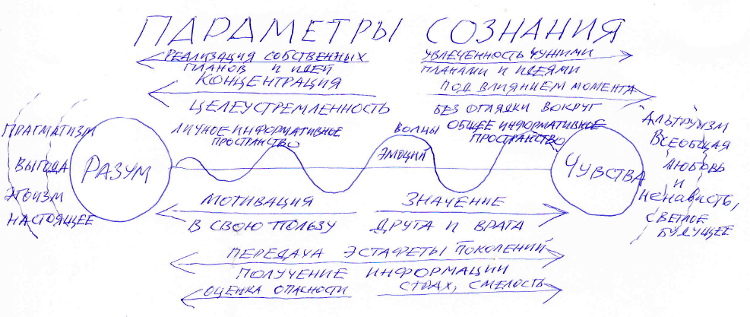 ПАРАМЕТРЫ СОЗНАНИЯ
РЕАЛИЗАЦИЯ СОБСТВЕННЫХ
ПЛАНОВ И ИДЕЙ
УВЛЕЧЕННОСТЬ ЧУЖИМИ
ПЛАНАМИ И ИДЕЯМИ
КОНЦЕНТРАЦИЯ
ПОД ВЛИЯНИЕМ МОМЕНТА
ЦЕЛЕУСТРЕМЛЕННОСТЬ
БЕЗ ОГЛЯДКИ ВОКРУГ
ЛИЧНОЕ ИНФОРМАТИВНОЕ
ПРОСТРАНСТВО
ВОЛНЫ
ЭМОЦИЙ
ОБЩЕЕ ИНФОРМАТИВНОЕ
ПРОСТРАНСТВО
ПРАГМАТИЗМ
ВЫГОДА
ЭГОИЗМ
НАСТОЯЩЕЕ
РАЗУМ
ЧУВСТВА
АЛЬТРУИЗМ
ВСЕОБЩАЯ
ЛЮБОВЬ
И
НЕНАВИСТЬ,
СВЕТЛОЕ
БУДУЩЕЕ
МОТИВАЦИЯ
В СВОЮ ПОЛЬЗУ
ЗНАЧЕНИЕ
ДРУГА И ВРАГА
ПЕРЕДАЧА ЭСТАФЕТЫ ПОКОЛЕНИЙ
ПОЛУЧЕНИЕ ИНФОРМАЦИИ
ОЦЕНКА ОПАСНОСТИ
СТРАХ, СМЕЛОСТЬ